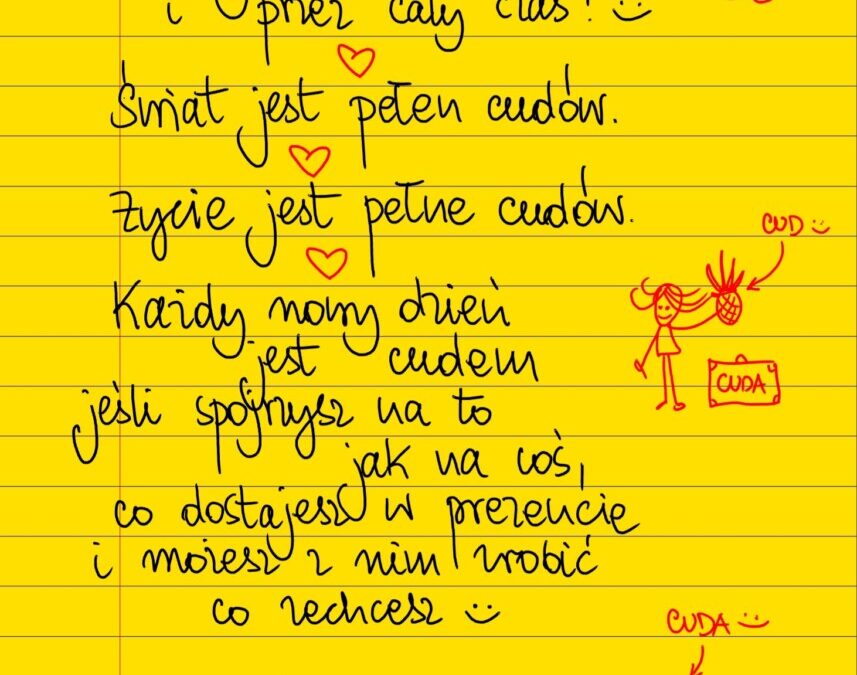 i przez cały czas! :)
Świat jest pełen cudów.
Życie jest pełne cudów.
CUD :)
Każdy nowy dzień
jest cudem
CUDA
jeśli spojrzysz na to
jak na coś,
co dostajesz w prezencie
i możesz z nim zrobić
co zechcesz :)
CUDA :)